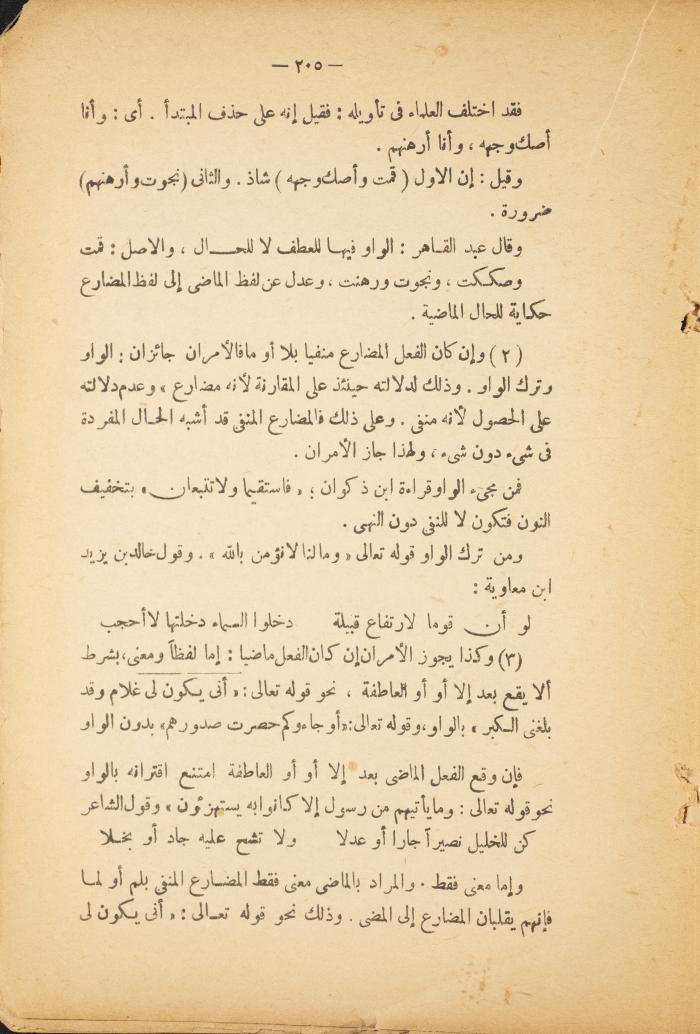 — ٢٠٥ —
فقد اختلف العلماء فى تأويله : فقيل إنه على حذف المبتدأ . أى : وأنا
أصك وجهه ، وأنا أرهنهم .
وقيل : إن الاول ( قمت وأصك وجهه ) شاذ . والثانى (نجوت وأرهنهم)
ضرورة .
وقال عبد القاهر : الواو فيها للعطف لا للحال ، والاصل : قمت
وصككت ، ونجوت ورهنت ، وعدل عن لفظ الماضى إلى لفظ المضارع
حكاية للحال الماضية .
( ٢ ) وإن كان الفعل المضارع منفيا بلا أو ما فالأمران جائزان : الواو
وترك الواو . وذلك لدلالته حينئذ على المقارنة لأنه مضارع » وعدم دلالته
على الحصول لأنه منفى . وعلى ذلك فالمضارع المنفى قد أشبه الحال المفردة
فى شىء دون شىء ، ولهذا جاز الأمران .
فمن مجىء الواو قراءة ابن ذكوان ؛ « فاستقيما ولا تتبعان » بتخفيف
النون فتكون لا للنفى دون النهى .
ومن ترك الواو قوله تعالى « ومالنا لا نؤمن بالله » . وقول خالد بن يزيد
ابن معاوية :
لو أن قوما لارتفاع قبيلة دخلوا السماء دخلتها لا أحجب
(٣) وكذا يجوز الأمران إن كان الفعل ماضيا : إما لفظاً ومعنى، بشرط
ألا يقع بعد إلا أو أو العاطفة ، نحو قوله تعالى : « أنى يكون لى غلام وقد
بلغنى الكبر » بالواو، وقوله تعالى: «أو جاءوكم حصرت صدورهم» بدون الواو
فإن وقع الفعل الماضى بعد إلا أو أو العاطفة امتنع اقترانه بالواو
نحو قوله تعالى : وما يأتيهم من رسول إلا كانوا به يستهزئون » وقول الشاعر
كن للخليل نصيراً جارا أو عدلا ولا تشح عليه جاد أو بخلا
وإما معنى فقط . والمراد بالماضى معنى فقط المضارع المنفى بلم أو لما
فإنهم يقلبان المضارع إلى المضى . وذلك نحو قوله تعالى : « أنى يكون لى